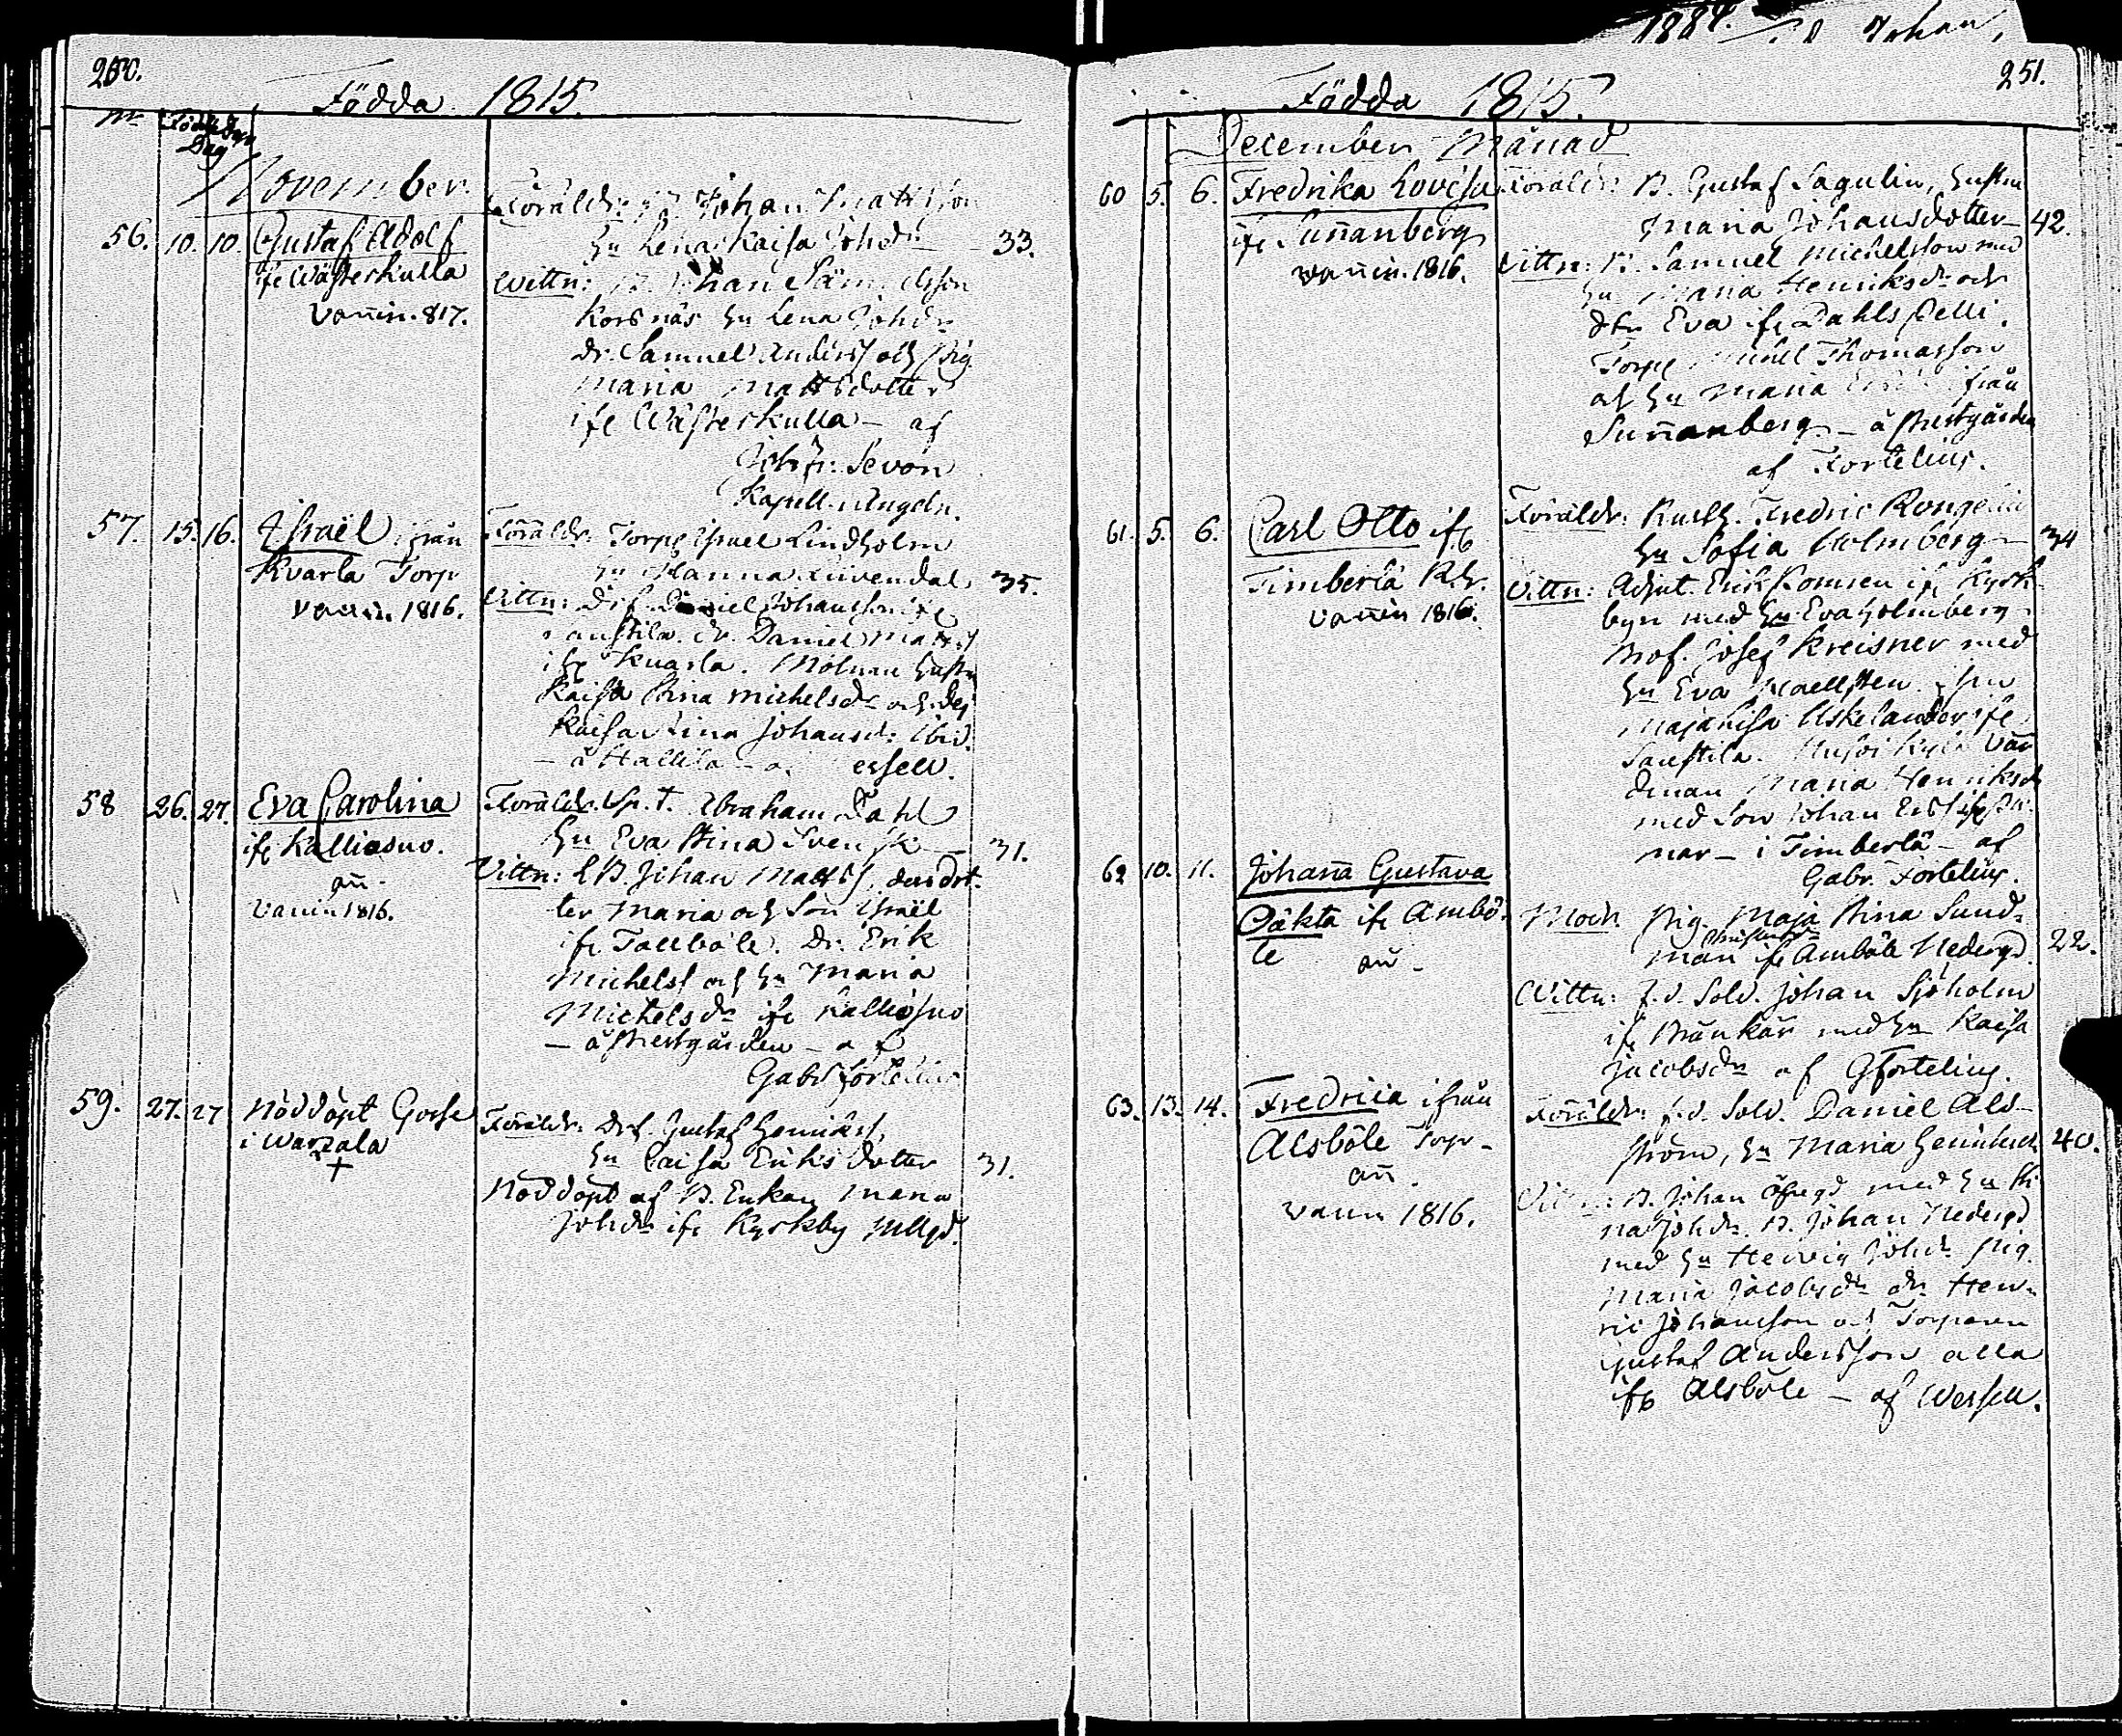 250.
Födda 1815
Nr Födelse Dag
November.
56. 10. 10. Gustaf Adolf
ifr Wästerkulla
Vaccin. 817.
Föräldr: B. Johan Mattsson
Hu Lena Kaisa Johdr 33.
Wittn: B. Johan
Korsnäs Hu Lena Johdr
dr. Samuel Anderss och Pig.
Maria Mattsdotter
ifr Wästerkulla - af
Sevon
Kapell. i Angeln.
57. 15. 16. Israël ifrån
Kvarla Torp
vaccin. 1816.
Föräldr: Torp Israel Lindholm
Hu Hanna 35.
Vittn: Drf. Daniel Johansson ifr
dr. Daniel Matts
ifr Kvarla. Hustr
Kaisa Stina Michelsdr och
Kaisa Stina Johansd: ibid.
- å Hallila -
58 26. 27. Eva Carolina
ifr Kalliosuo.
an -
Vaccin 1816.
Föräldr. Sp. T. Abraham Dahl
Hu Eva Stina Svensk 31.
Vittn: L B. Johan Matts, dess dot-
ter Maria och Son Israël
ifr Tallböle. Dr. Erik
Michelss och Hu Maria
Michelsdr ifr Kalliosuo
- å Prestgården - af
Gabr Fortelius
59. 27. 27 Nöddöpt Gosse
i Warzala
+
Föräldr: Drf. Gustaf Henrikss,
Hu Caisa Eriksdotter 31.
Nöddöpt af B. Enkan Maria
Johdr ifr Kyrkby Mllgd.
1884. Johan,
251.
Födda 1815.
December Månad
60 5. 6. Fredrika Lovisa
ifr Sunnanberg
vaccin. 1816.
Föräldr: B. Gustaf Sagulin, Hustru
Maria Johansdotter - 42.
Vittn: B. Samuel Michelsson med
Hu Maria Henriksdr och
dtr Eva ifr Dahls Pelli.
Torp Michel Thomasson
och Hu Maria ifrån
Sunnanberg - å Prestgården
af Fortelius.
61. 5. 6. Carl Otto ifr
Timberlä Rh.
vaccin 1816.
Föräldr: Rusth. Fredric
Hu Sofia Holmberg - 34
Vittn: Adjut. Erik ifr Kyrk-
byn med Hu Eva Holmberg.
Prof. Josef Kreisner med
Hu Eva
Maja Lisa Askelander ifr
Sauftila.
dinan Maria Henriksdr
med Son Johan ifr
nar - i Timberlä - af
Gabr. Fortelius.
62 10. 11. Johanna Gustava
Oäkta ifr Ambö-
le an -
Modr. Pig. Maja Stina Sund-
man ifr Amböle Nedergd. 22.
Vittn: f.d. Sold. Johan Sjöholm
ifr Bränkär med Hu Kaisa
Jacobsdr af G Fortelius.
63. 13. 14. Fredrica ifrån
Alsböle Torp -
an.
vaccin 1816.
Föräldr: f.d. Sold. Daniel Als-
ström, Hu Maria Henriksdr 40.
Vittn: B. Johan Öfregd med Hu Sti
na Johdr. B. Johan Nedergd
med Hu Hewig Johdr Pig.
Maria Jacobsdr dr. Hen-
ric Johansson och Torparen
Gustaf Andersson alla
ifr Alsböle - af Wessell.